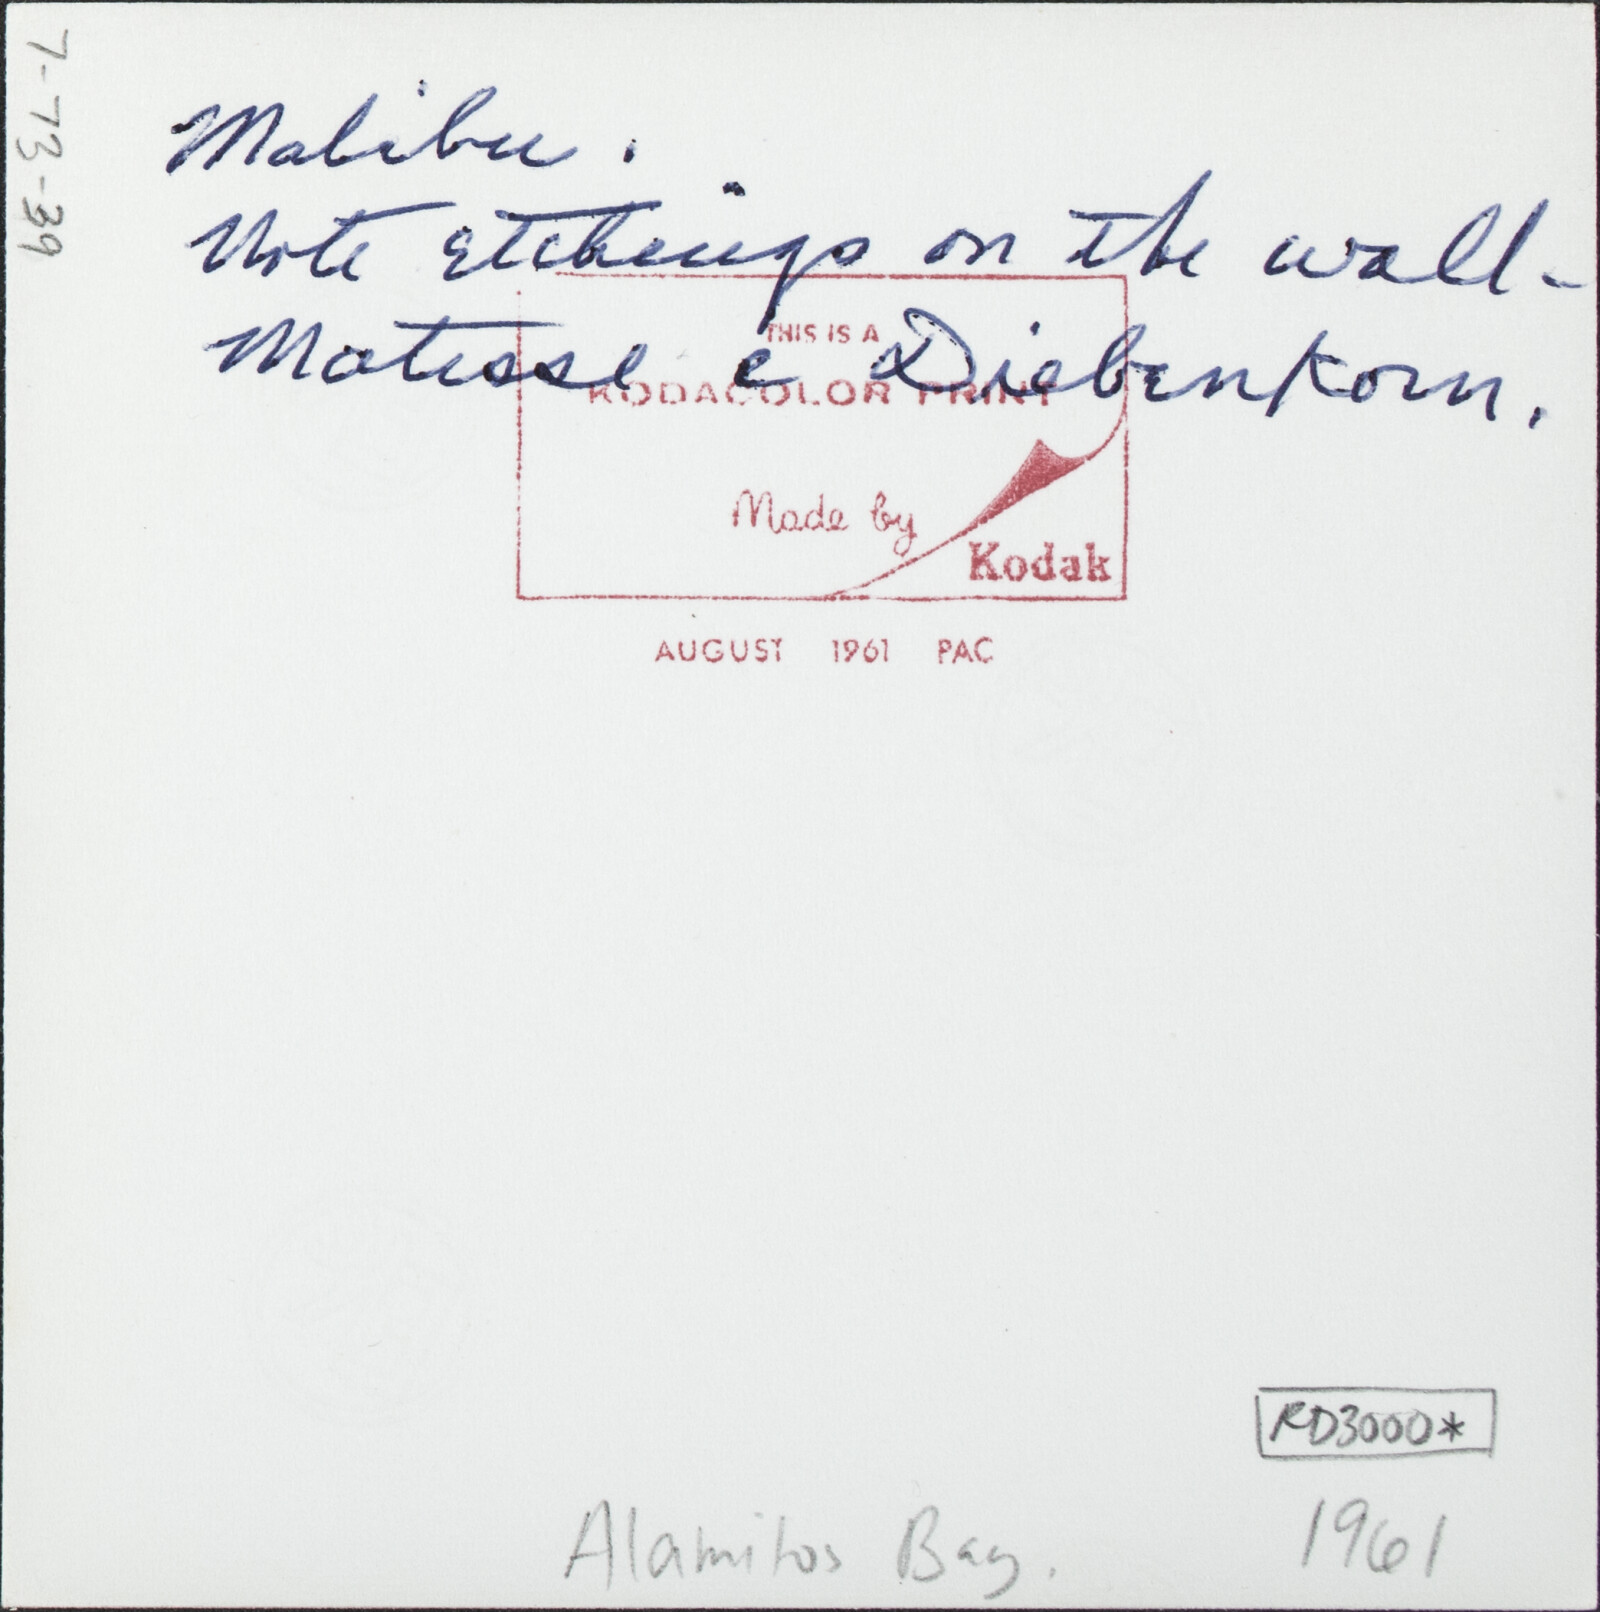 7-73-39
Malibu.
Note etchings on the wall-
Matisse e Diebenkorn.
THIS IS A
KODACOLOR PRINT
Made by
Kodak
AUGUST 1961 PAC
RD3000*
Alamitos Bay. 1961